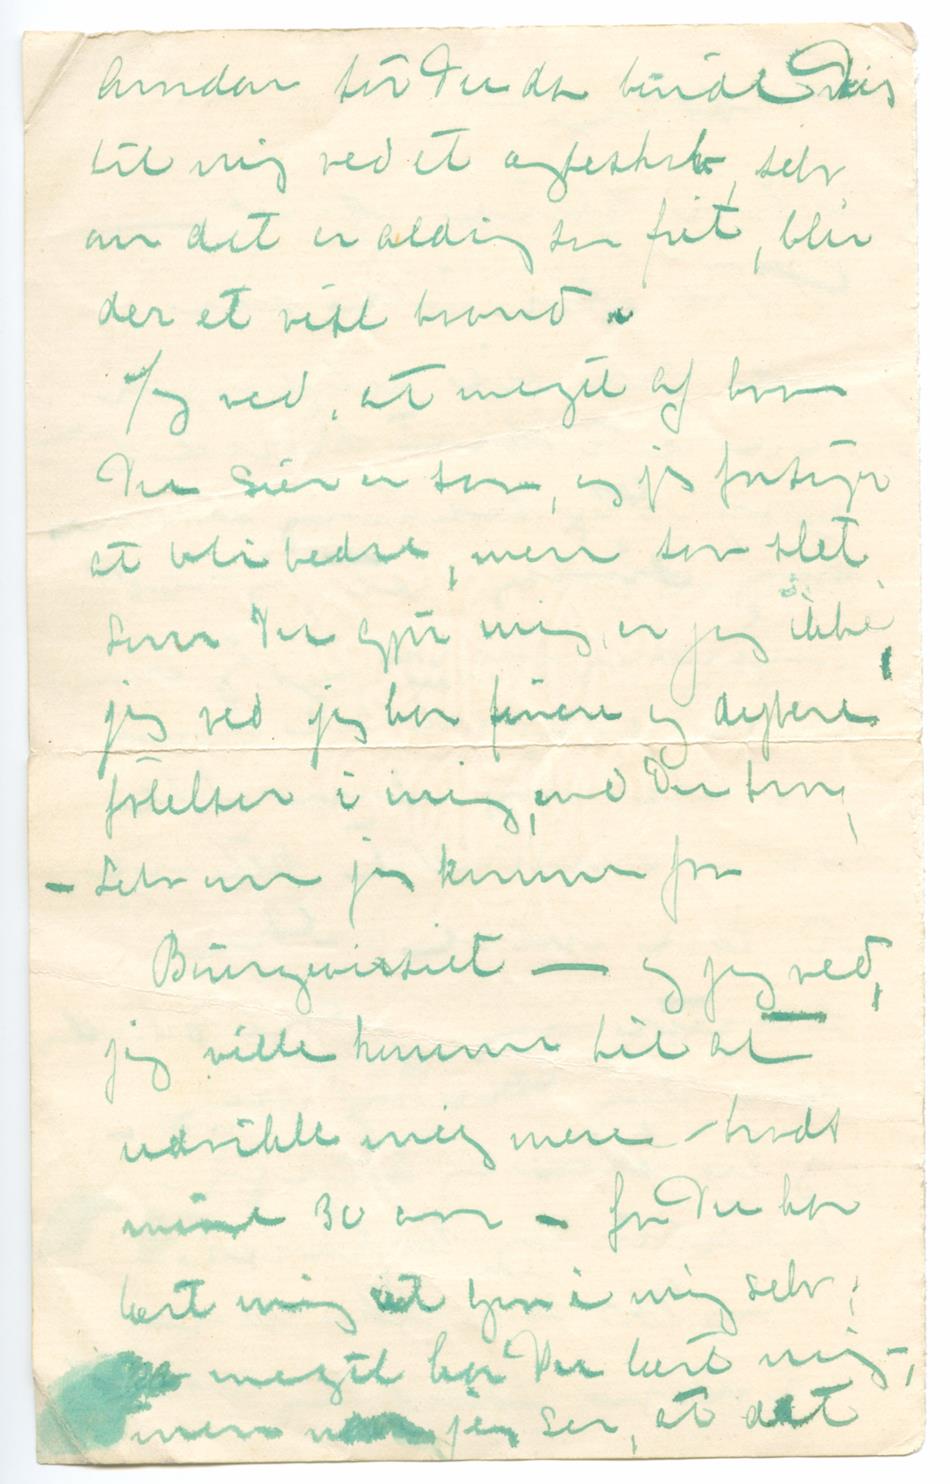 hvordan tör Du da binde Dig
til mig ved et ægteskab, selv
om det er aldrig saa frit, blir
der et vist baand.
Jeg ved, at meget af hvad
Du sier er sant, og jeg forsöger
at bli bedre, men saa slet
som Du gjör mig, er jeg ikke,
jeg ved jeg har finere og dybere
fölelser i mig, end Du tror,
– Selv om jeg kommer fra
– og jeg ved,
jeg ville komme til at
udvikle mig mere – trods
mine 30 aar – for Du har
lært mig at gaa i mig selv;
meget har Du lært mig,
men naar jeg ser, at det